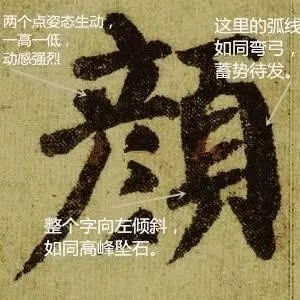 两个点姿态生动，
一高一低，
动感强烈
这里的弧线
如同弯弓，
蓄势待发。
顏
整个字向左倾斜，
如同高峰坠石。